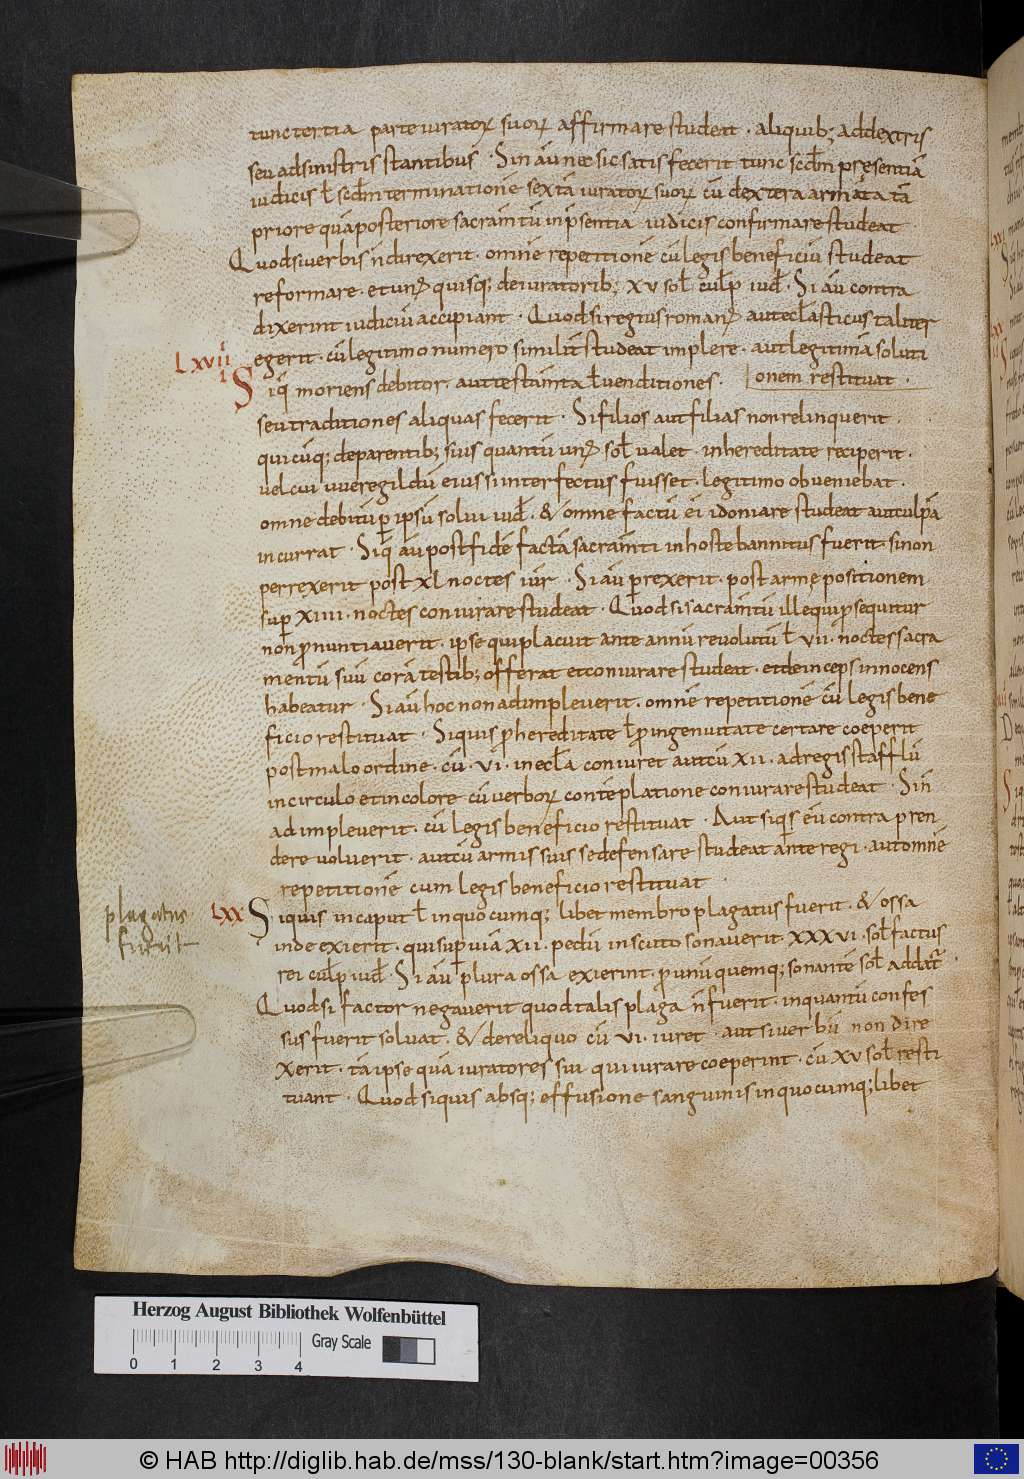 tunc tertia parte iuratoꝝ suoꝝ affirmare studeat · aliquib; ad dextris
seu ad sinistris stantibus · Sin aū nec sic satis fecerit tunc scđm presentiā
iudicis ł scđm terminationē sextā iuratoꝝ suoꝝ cū dextera armata tā
priore quā posteriore sacramtū in p̄sentia iudicis confirmare studeat ·
Quod si uerbis n̄ direxerit · omnē repetitionē cū legis beneficiū studeat
reformare · et unꝰ quisq; de iuratorib; xv sol culp̄ iud̄ · Si aū contra
dixerint iudiciū accipiant · Quod si regius romanꝰ aut ecłasticus taliter
egerit · cū legitimo numero similit̄ studeat implere · aut legitimā soluti
LXVIIII
Siq̄ moriens debitor aut testamta ł uenditiones · onem restituat ·
seu traditiones aliquas fecerit · Si filios aut filias non relinquerit
quicūq; de parentib; suis quantū unꝰ sol ualet · in hereditate reciperit ·
uel cui uueregildū eius si interfectus fuisset · legitimo obueniebat ·
omne debitū p̱ ipsū solui iud̄ · & omne factū ei idoniare studeat aut culpā
incurrat · Siq̄ aū post fidē factā sacramti in hoste bannitus fuerit · si non
perrexerit post XL noctes iur̄ · Si aū p̱rexerit · post armę positionem
sup̱ XIIII · noctes coniurare studeat · Quod si sacramtū ille qui p̱sequitur
non pronuntiauerit · ipse qui placuit ante annū reuolutū ł VII · noctes sacra
mentū suū corā testib; offerat et coniurare studeat · et deinceps innocens
habeatur · Si aū hoc non adimpleuerit · omnē repetitionē cū legis bene
ficio restituat · Si quis p̱ hereditate ł p̱ ingenuitate certare coeperit
post malo ordine · cū · VI · in ecła coniuret aut cū XII · ad regis stafflū
in circulo et in colore cū uerboꝝ contēplatione coniurare studeat · Sin̄
adimpleuerit · cū legis beneficio restituat · Aut si q̄s eū contra pren
dere uoluerit · aut cū armis suis se defensare studeat ante regi · aut omnē
repetitionē cum legis beneficio restituat ·
plagatus
fuerit
LXX
Siquis in caput ł in quocumq; libet membro plagatus fuerit · & ossa
inde exierit · qui sup̱ uiā XII · pedū in scuto sonauerit · XXXVI · sol factus
rei culp̄ iud̄ · Si aū plura ossa exierint · p̱ unū quemq; sonantē sol addat̄ ·
Quod si factor negauerit quod talis plaga n̄ fuerit · in quantū confes
sus fuerit soluat · & de reliquo cū VI · iuret · aut si uerbū non dire
xerit · tā ipse quā iuratores sui qui iurare coeperint · cū XV sol resti
tuant · Quod si quis absq; effusione sanguinis in quocumq; libet
Herzog August Bibliothek Wolfenbüttel
Gray Scale
0 1 2 3 4
© HAB http://diglib.hab.de/mss/130-blank/start.htm?image=00356